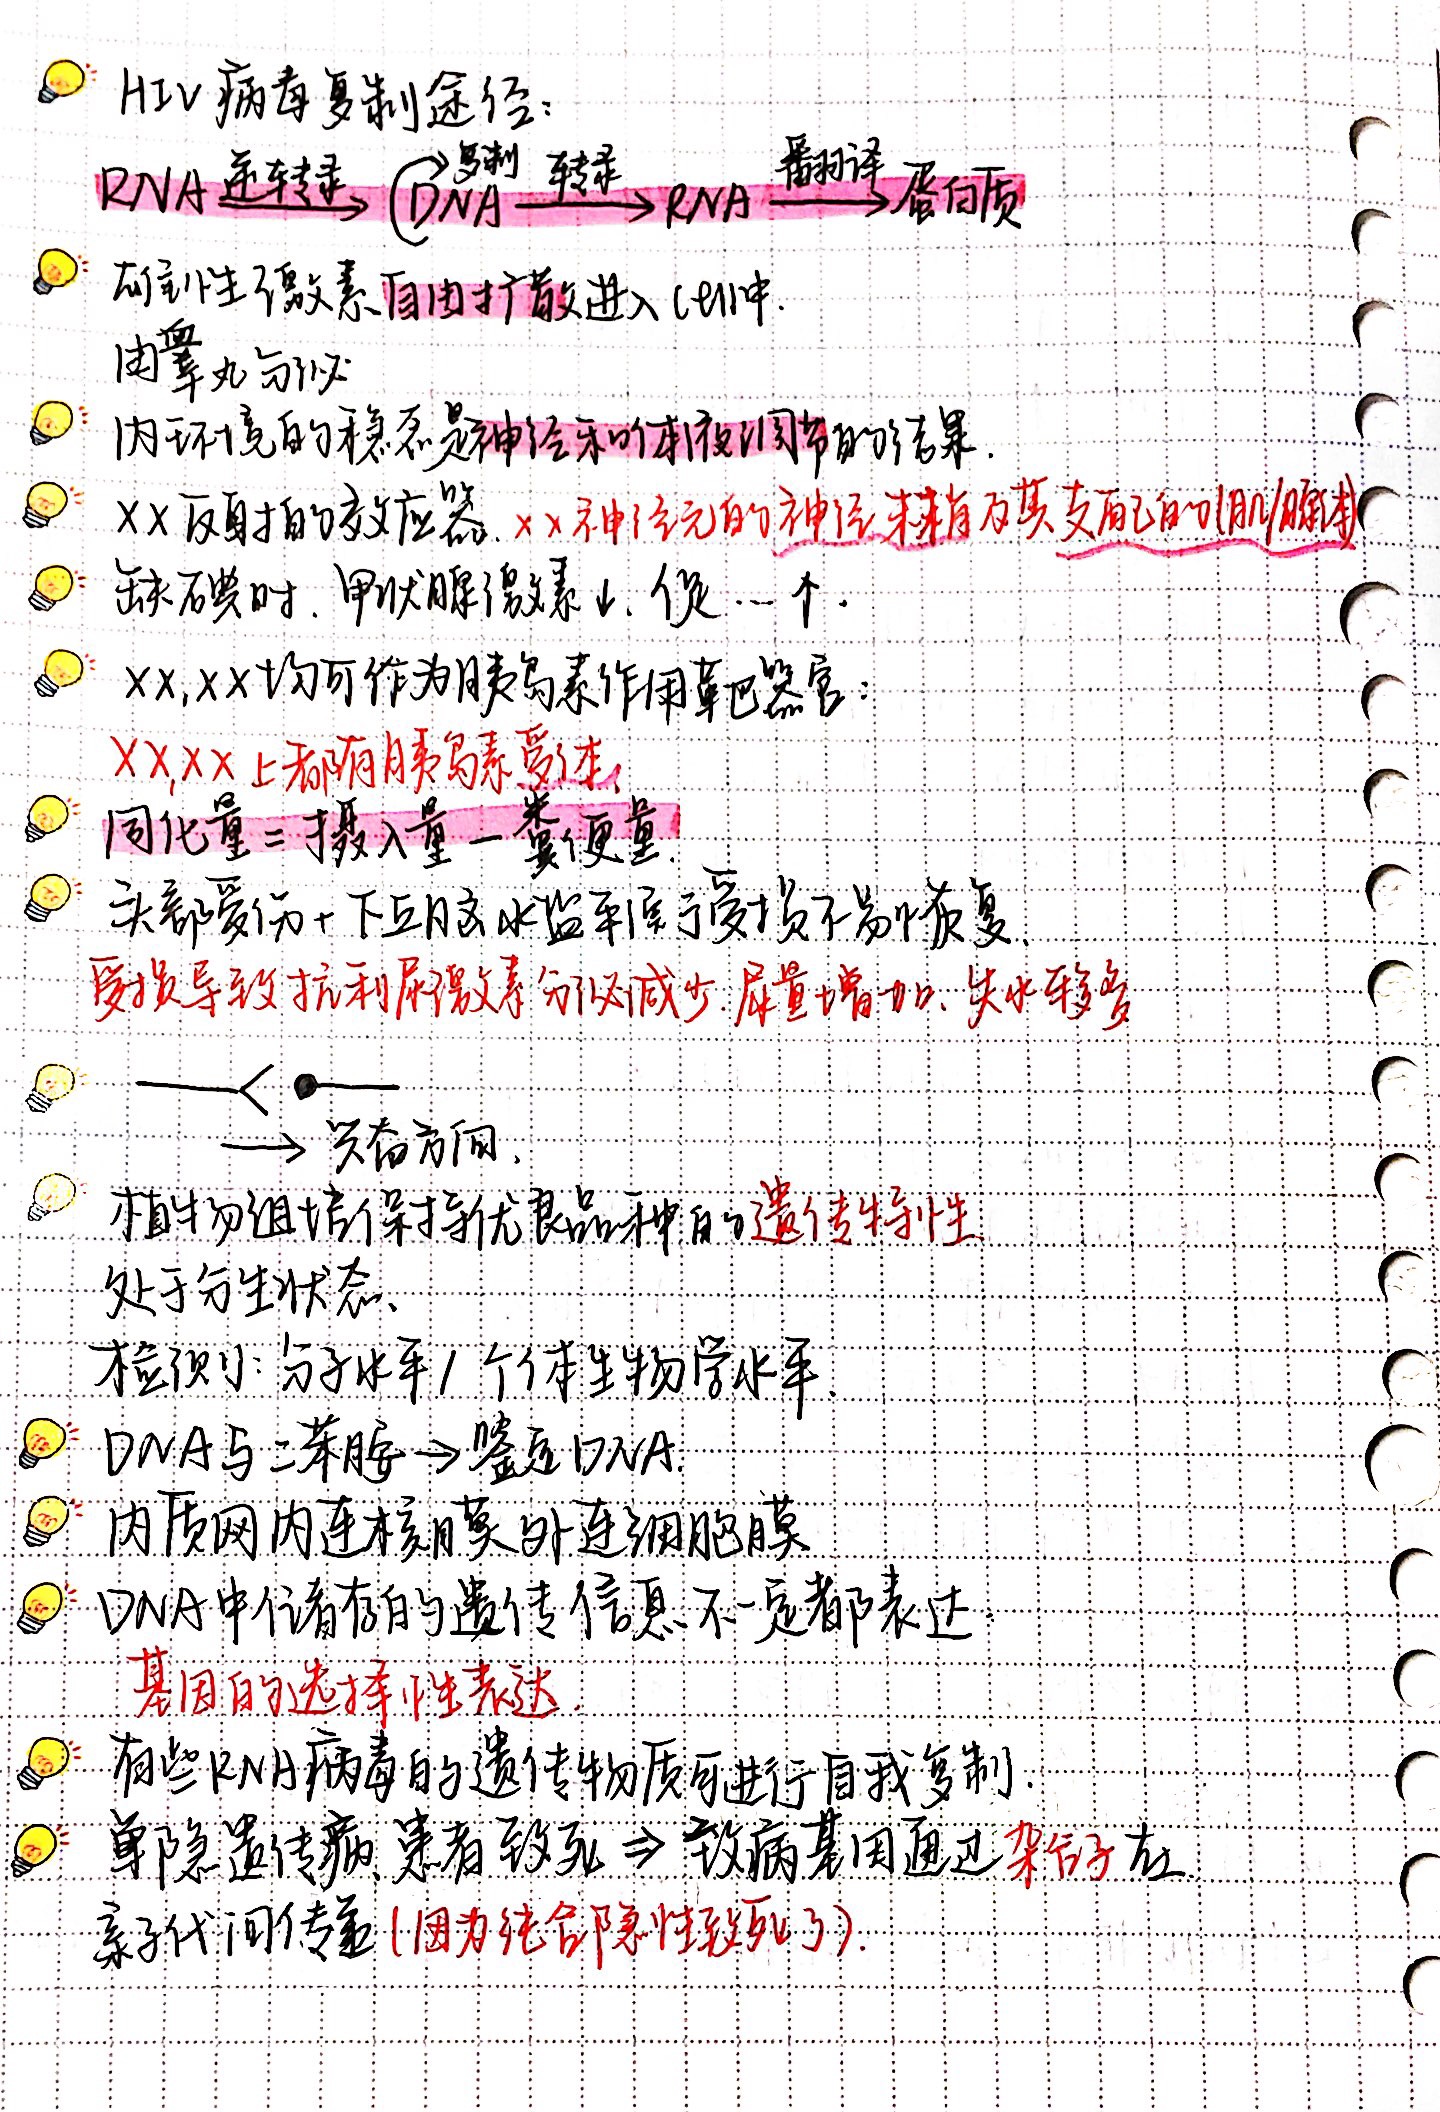 HIV病毒复制途径：
RNA 逆转录 DNA 复制 转录 RNA 翻译 蛋白质
雄性激素自由扩散进入cell中.
由睾丸分泌
内环境的稳态是神经和体液调节的结果.
××反射的效应器.××神经元的神经末梢及其支配的(肌/腺体)
缺碘时.甲状腺激素↓.促…↑.
××,××均可作为胰岛素作用靶器官：
××,××上都有胰岛素受体.
同化量=摄入量－粪便量.
头部受伤+下丘脑水盐平衡受损不易恢复.
受损导致抗利尿激素分泌减少.尿量增加.失水较多
→兴奋方向.
植物组培保持优良品种的遗传特性.
处于分生状态.
检测:分子水平/个体生物学水平.
DNA与二苯胺→鉴定DNA.
内质网内连核膜外连细胞膜
DNA中储存的遗传信息不一定都表达.
基因的选择性表达.
有些RNA病毒的遗传物质可进行自我复制.
单隐遗传病.患者致死⇒致病基因通过杂合子在
亲子代间传递(因为纯合隐性致死了).